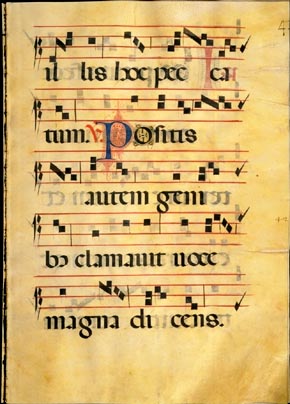 il lis hoc pec ca
tum. V. Positis
autem geni
bꝫ clamauit uoce
magna di cens.